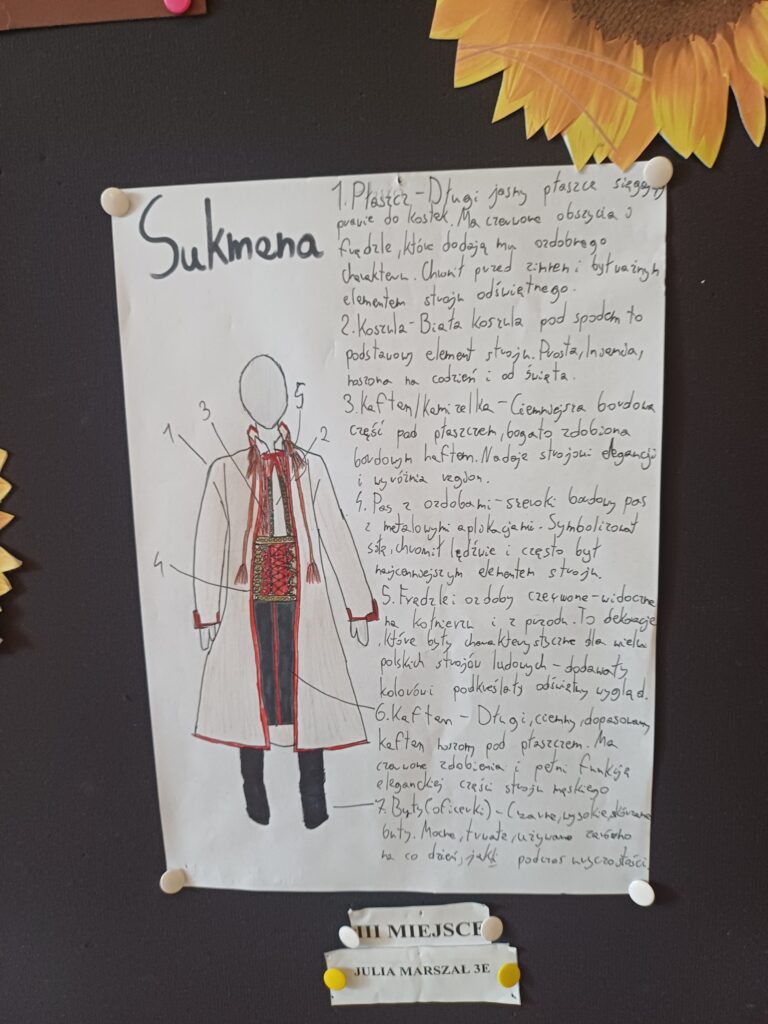 Sukmana
1. Płaszcz - Długi jasny płaszcz sięgający
prawie do kostek. Ma czerwone obszycia i
frędzle, które dodają mu ozdobnego
charakteru. Chronił przed zimnem i był ważnym
elementem stroju odświętnego.
2. Koszula - Biała koszula pod spodem to
podstawowy element stroju. Prosta, lniana,
noszona na codzień i od święta.
3. Kaftan/kamizelka - Ciemniejsza bordowa
część pod płaszczem, bogato zdobiona
bordowym haftem. Nadaje strojowi elegancji
i wyróżnia
4. Pas z ozdobami - szeroki bordowy pas
z metalowymi aplikacjami. Symbolizował
siłę, chronił lędźwie i często był
najcenniejszym elementem stroju.
5. Frędzle i ozdoby czerwone - widoczne
na kołnierzu i z przodu. To dekoracje
, które były charakterystyczne dla wielu
polskich strojów ludowych - dodawały
koloru i podkreślały odświętny wygląd.
6. Kaftan - Długi, ciemny, dopasowany
kaftan noszony pod płaszczem. Ma
czerwone zdobienia i pełni funkcję
eleganckiej części stroju męskiego
7. Buty (oficerki) - Czarne, wysokie, skórzane
buty. Mocne, trwałe, używane zarówno
na co dzień, jak i podczas uroczystości.
3
5
1
2
4
III MIEJSCE
JULIA MARSZAL 3E